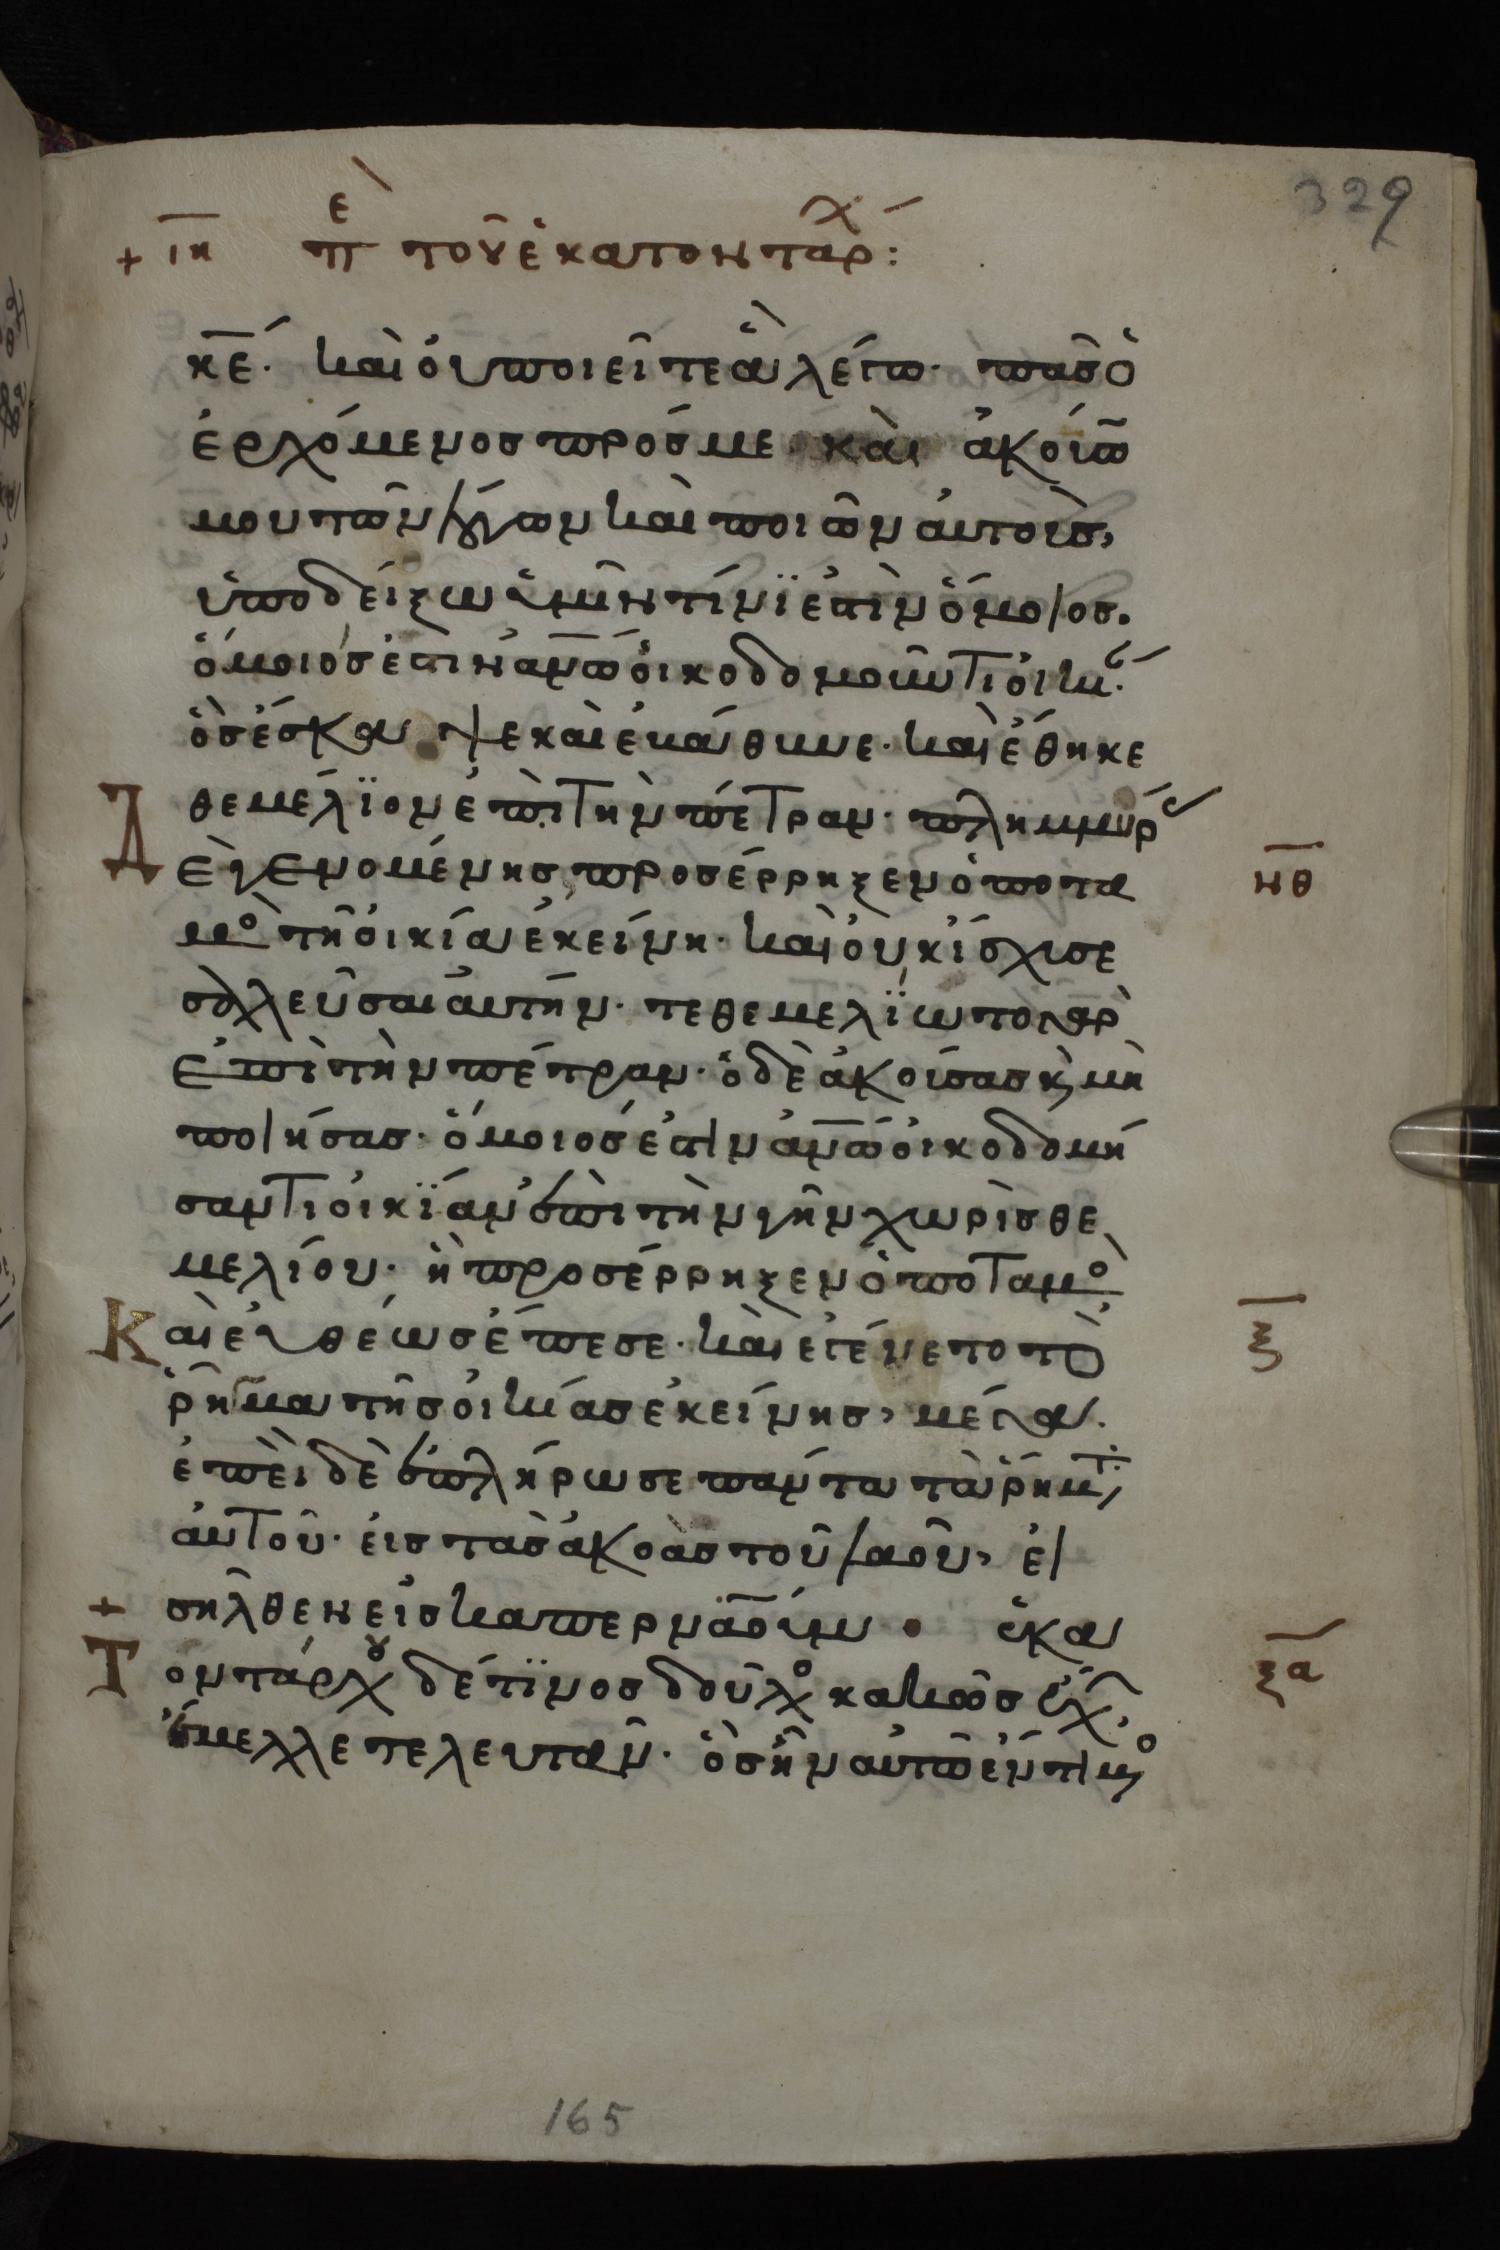 329
+ ιη περ τοῦ ἑκατοντάρχ:
κε̅. καὶ οὐ ποιεῖτε ἃ λέγω. πᾶσ ὁ
ἐρχόμενοσ πρόσ με. καὶ ἀκούω
μου τῶν λόγων καὶ ποιῶν αὐτοὺσ,
ὑποδείξω ὑμῖν τίνϊ ἐστὶν ὅμοιοσ.
ὅμοιόσ ἐστιν ἀν̅ω̅ οἰκοδομοῦντι οἰκί
ὃσ ἔσκαψε καὶ ἐβάθυνε. καὶ ἔθηκε
θεμέλϊον ἐπὶ τὴν πέτραν. πλημμύρ
Δ ὲ γενομένησ, προσέρρηξεν ὁ ποτα
μο τῆ οἰκία ἐκείνη. καὶ οὐκ ἴσχυσε
σαλεῦσαι αὐτήν. τεθεμελϊωτο γὰρ
ἐπὶ τὴν πέτραν. ὁ δὲ ἀκούσασ κ μὴ
ποιήσασ. ὅμοιόσ ἐστιν ἀν̅ω̅ οἰκοδομή
σαντι οἰκϊαν ἐπὶ τὴν γῆν χωρὶσ θε
μελίου. ἧ προσέρρηξεν ὁ ποταμο
Κ αὶ εὐθέωσ ἔπεσε. καὶ ἐγένετο τὸ
ῥῆγμα τῆσ οἰκίασ ἐκείνησ, μέγα.
ἐπεὶ δὲ ἐπλήρωσε πάντα τὰ ῥήματ
αὐτοῦ. εἰσ τὰσ ἀκοὰσ τοῦ λαοῦ, εἰ
+ σῆλθεν εἰσ καπερναοὺμ . ἑκα
Τ οντάρχου δέ τϊνοσ δοῦλο κακῶσ ἔχ,
ἔμελλε τελευτᾶν. ὃσ ἦν αὐτῶ ἔντιμο
νθ
ξ
ξα
165